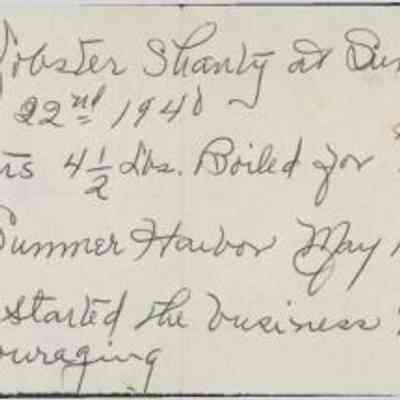 Lobster Shanty at Sum
22nd 1940
rs 4 1/2 Lbs. Boiled for
Summer Harbor May 1
Started the business
ouraging